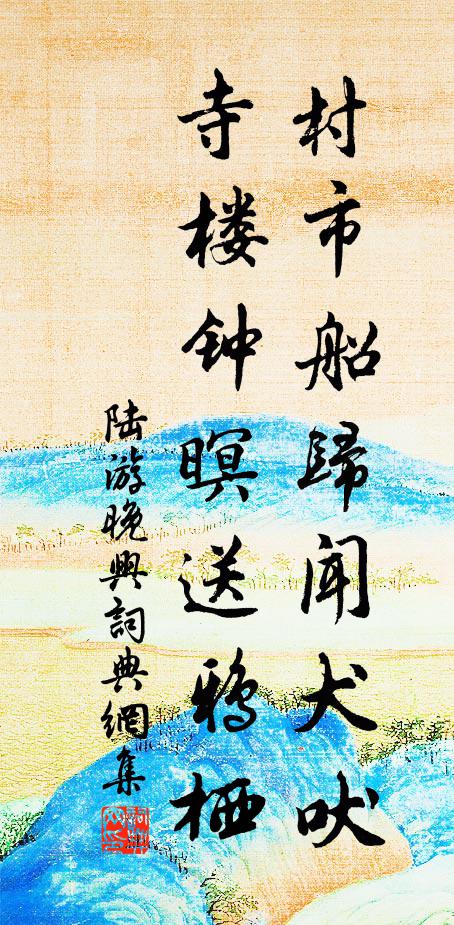 村市船歸闻犬吠
寺楼钟暝送鸦栖
陆游晚興詞典網集